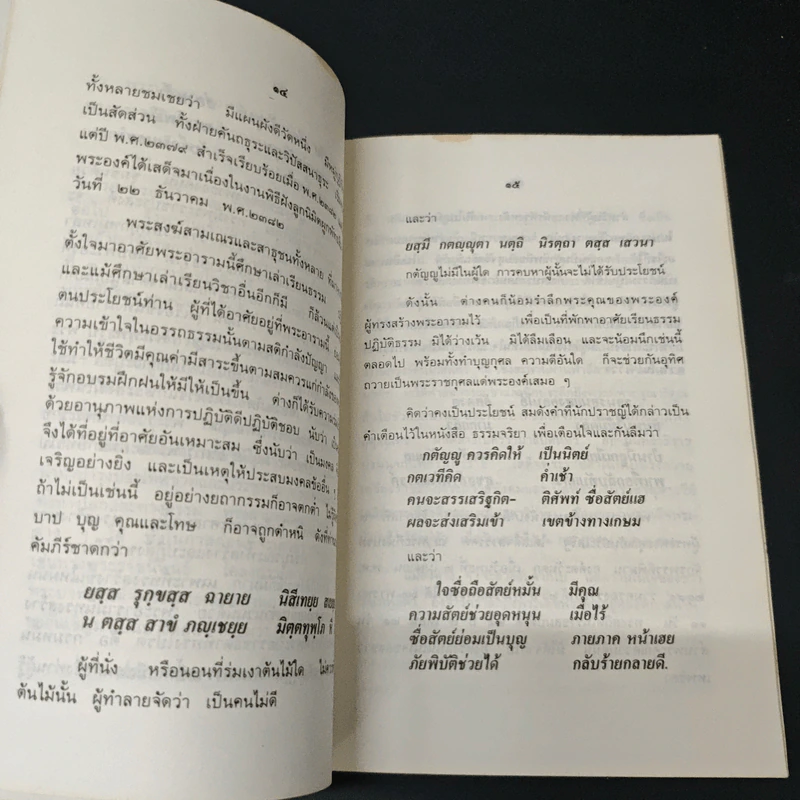 ๑๔
ทั้งหลายชมเชยว่า มีแผนผังดีวัดหนึ่ง
เป็นสัดส่วน ทั้งฝ่ายคันถธุระและวิปัสสนาธุระ
แต่ปี พ.ศ.๒๓๗๙ สำเร็จเรียบร้อยเมื่อ พ.ศ.๒๓๘๒
พระองค์ได้เสด็จมาเนื่องในงานพิธีฝังลูกนิมิตผูกพัทธสีมา
วันที่ ๒๒ ธันวาคม พ.ศ.๒๓๘๒
พระสงฆ์สามเณรและสาธุชนทั้งหลาย
ตั้งใจมาอาศัยพระอารามนี้ศึกษาเล่าเรียนธรรม
และแม้ศึกษาเล่าเรียนวิชาอื่นอีกก็มี ก็ล้วนแต่
ตนประโยชน์ท่าน ผู้ที่ได้อาศัยอยู่ที่พระอารามนี้
ความเข้าใจในอรรถธรรมนั้นตามสติกำลังปัญญา
ใช้ทำให้ชีวิตมีคุณค่ามีสาระขึ้นตามสมควรแก่กำลัง
รู้จักอบรมฝึกฝนให้มีให้เป็นขึ้น ต่างก็ได้รับความ
ด้วยอานุภาพแห่งการปฏิบัติดีปฏิบัติชอบ นับว่า
จึงได้ที่อยู่ที่อาศัยอันเหมาะสม ซึ่งนับว่า เป็นมงคล
เจริญอย่างยิ่ง และเป็นเหตุให้ประสบมงคลข้ออื่น
ถ้าไม่เป็นเช่นนี้ อยู่อย่างยถากรรมก็อาจตกต่ำ ไม่รู้
บาป บุญ คุณและโทษ ก็อาจถูกตำหนิ ดังที่ท่าน
คัมภีร์ชาดกว่า
ยสฺส รุกฺขสฺส ฉายาย นิสีเทยฺย
น ตสฺส สาขํ ภญฺเชยฺย มิตฺตทุพฺโภ หิ
ผู้ที่นั่ง หรือนอนที่ร่มเงาต้นไม้ใด
ต้นไม้นั้น ผู้ทำลายจัดว่า เป็นคนไม่ดี
๑๕
และว่า
ยสฺมึ กตญฺญุตา นตฺถิ นิรตฺถา ตสฺส เสวนา
กตัญญูไม่มีในผู้ใด การคบหาผู้นั้นจะไม่ได้รับประโยชน์
ดังนั้น ต่างคนก็น้อมรำลึกพระคุณของพระองค์
ผู้ทรงสร้างพระอารามไว้ เพื่อเป็นที่พักพาอาศัยเรียนธรรม
ปฏิบัติธรรม มิได้ว่างเว้น มิได้ลืมเลือน และจะน้อมนึกเช่นนี้
ตลอดไป พร้อมทั้งทำบุญกุศล ความดีอันใด ก็จะช่วยกันอุทิศ
ถวายเป็นพระราชกุศลแด่พระองค์เสมอ ๆ
คิดว่าคงเป็นประโยชน์ สมดังคำที่นักปราชญ์ได้กล่าวเป็น
คำเตือนไว้ในหนังสือ ธรรมจริยา เพื่อเตือนใจและกันลืมว่า
กตัญญู ควรคิดให้ เป็นนิตย์
กตเวทีคิด ค่ำเช้า
คนจะสรรเสริฐกิต- ติศัพท์ ซื่อสัตย์แฮ
ผลจะส่งเสริมเข้า เขตข้างทางเกษม
และว่า
ใจซื่อถือสัตย์หมั้น มีคุณ
ความสัตย์ช่วยอุดหนุน เมื่อไร้
ซื่อสัตย์ย่อมเป็นบุญ ภายภาค หน้าเฮย
ภัยพิบัติช่วยได้ กลับร้ายกลายดี.